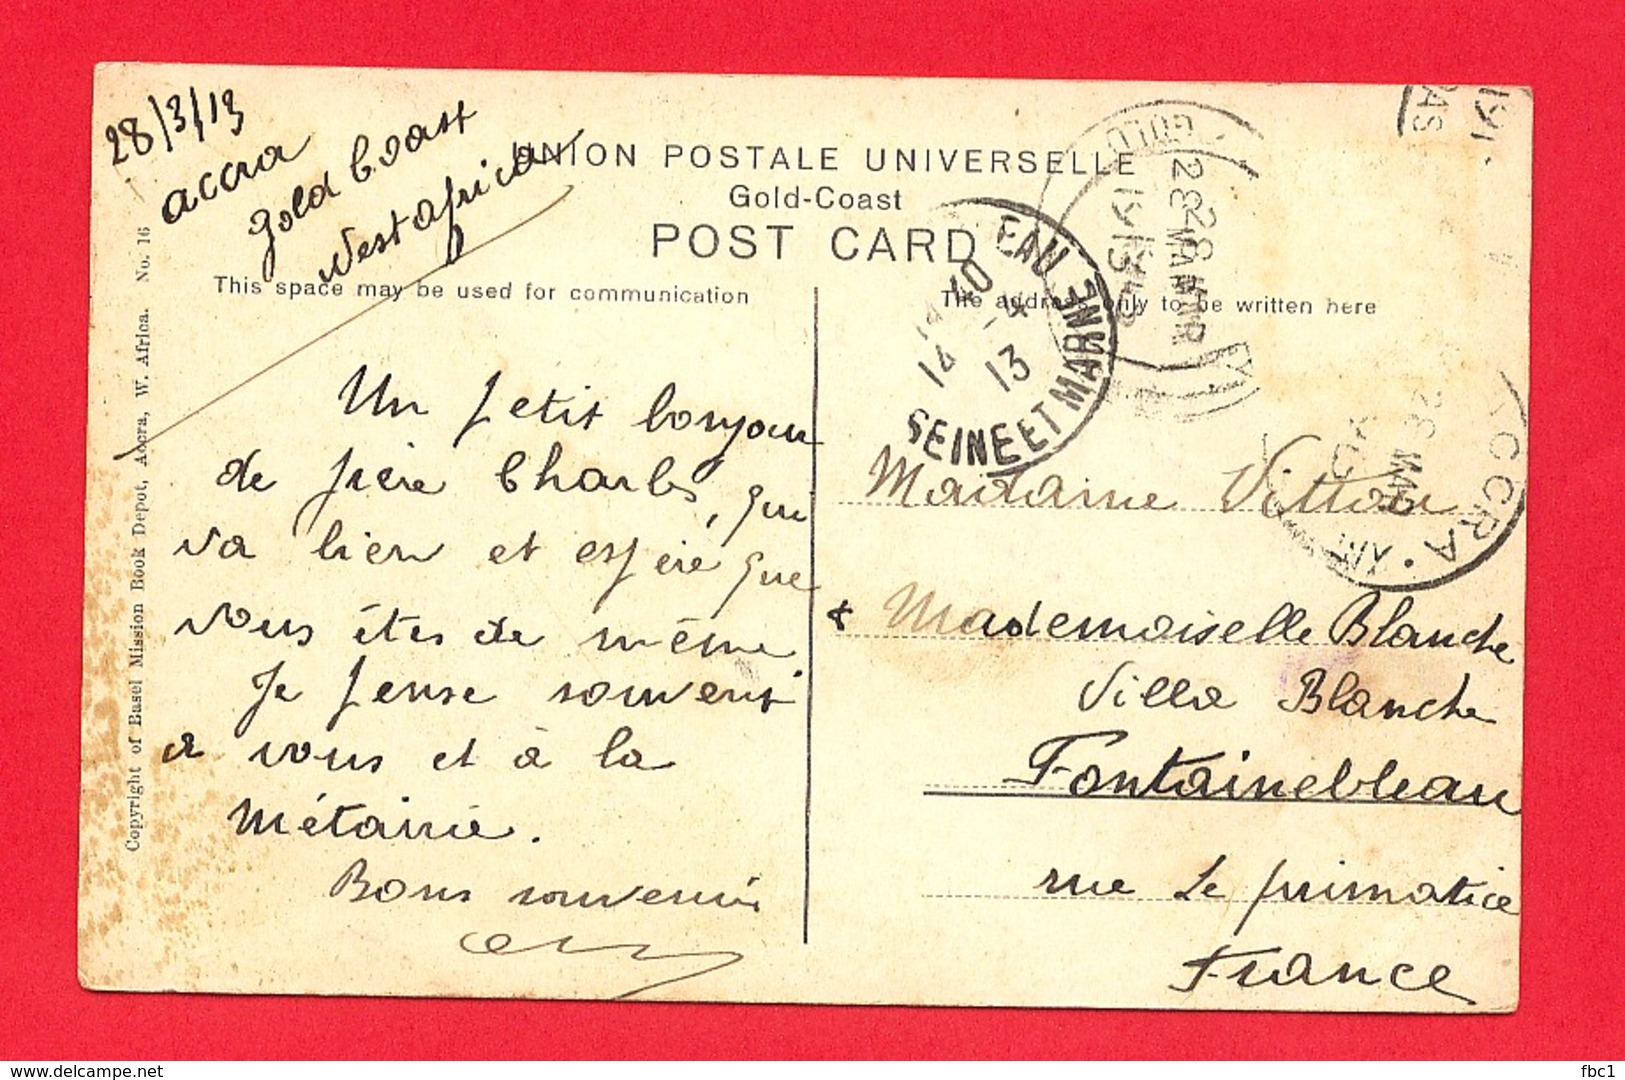 28/3/13
accra
gold Coast
West africa
UNION POSTALE UNIVERSELLE
Gold-Coast
POST CARD
This space may be used for communication
The address only to be written here
Copyright of Basel Mission Book Depot, Accra, W. Africa. No. 16
Un petit bonjour
de frère Charles, qui
va bien et espère que
vous êtes de même.
Je pense souvent
à vous et à la
Métairie.
Bons souvenirs
Madame Vittou
& Mademoiselle Blanche
Villa Blanche
Fontainebleau
rue Le primatice
France
EAU
SEINE ET MARNE
14
10
-4
13
GOLD
28 MAR
1913
28 MAR
ACCRA
28 MAR
191
delcampe.net
fbc1